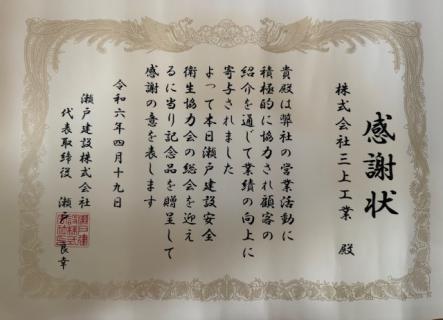 感謝状
株式会社三上工業 殿
貴殿は弊社の営業活動に
積極的に協力され顧客の
紹介を通じて業績の向上に
寄与されました
よって本日瀬戸建設安全
衛生協力会の総会を迎え
るに当り記念品を贈呈して
感謝の意を表します
令和六年四月十九日
瀬戸建設株式会社
代表取締役 瀬戸良幸